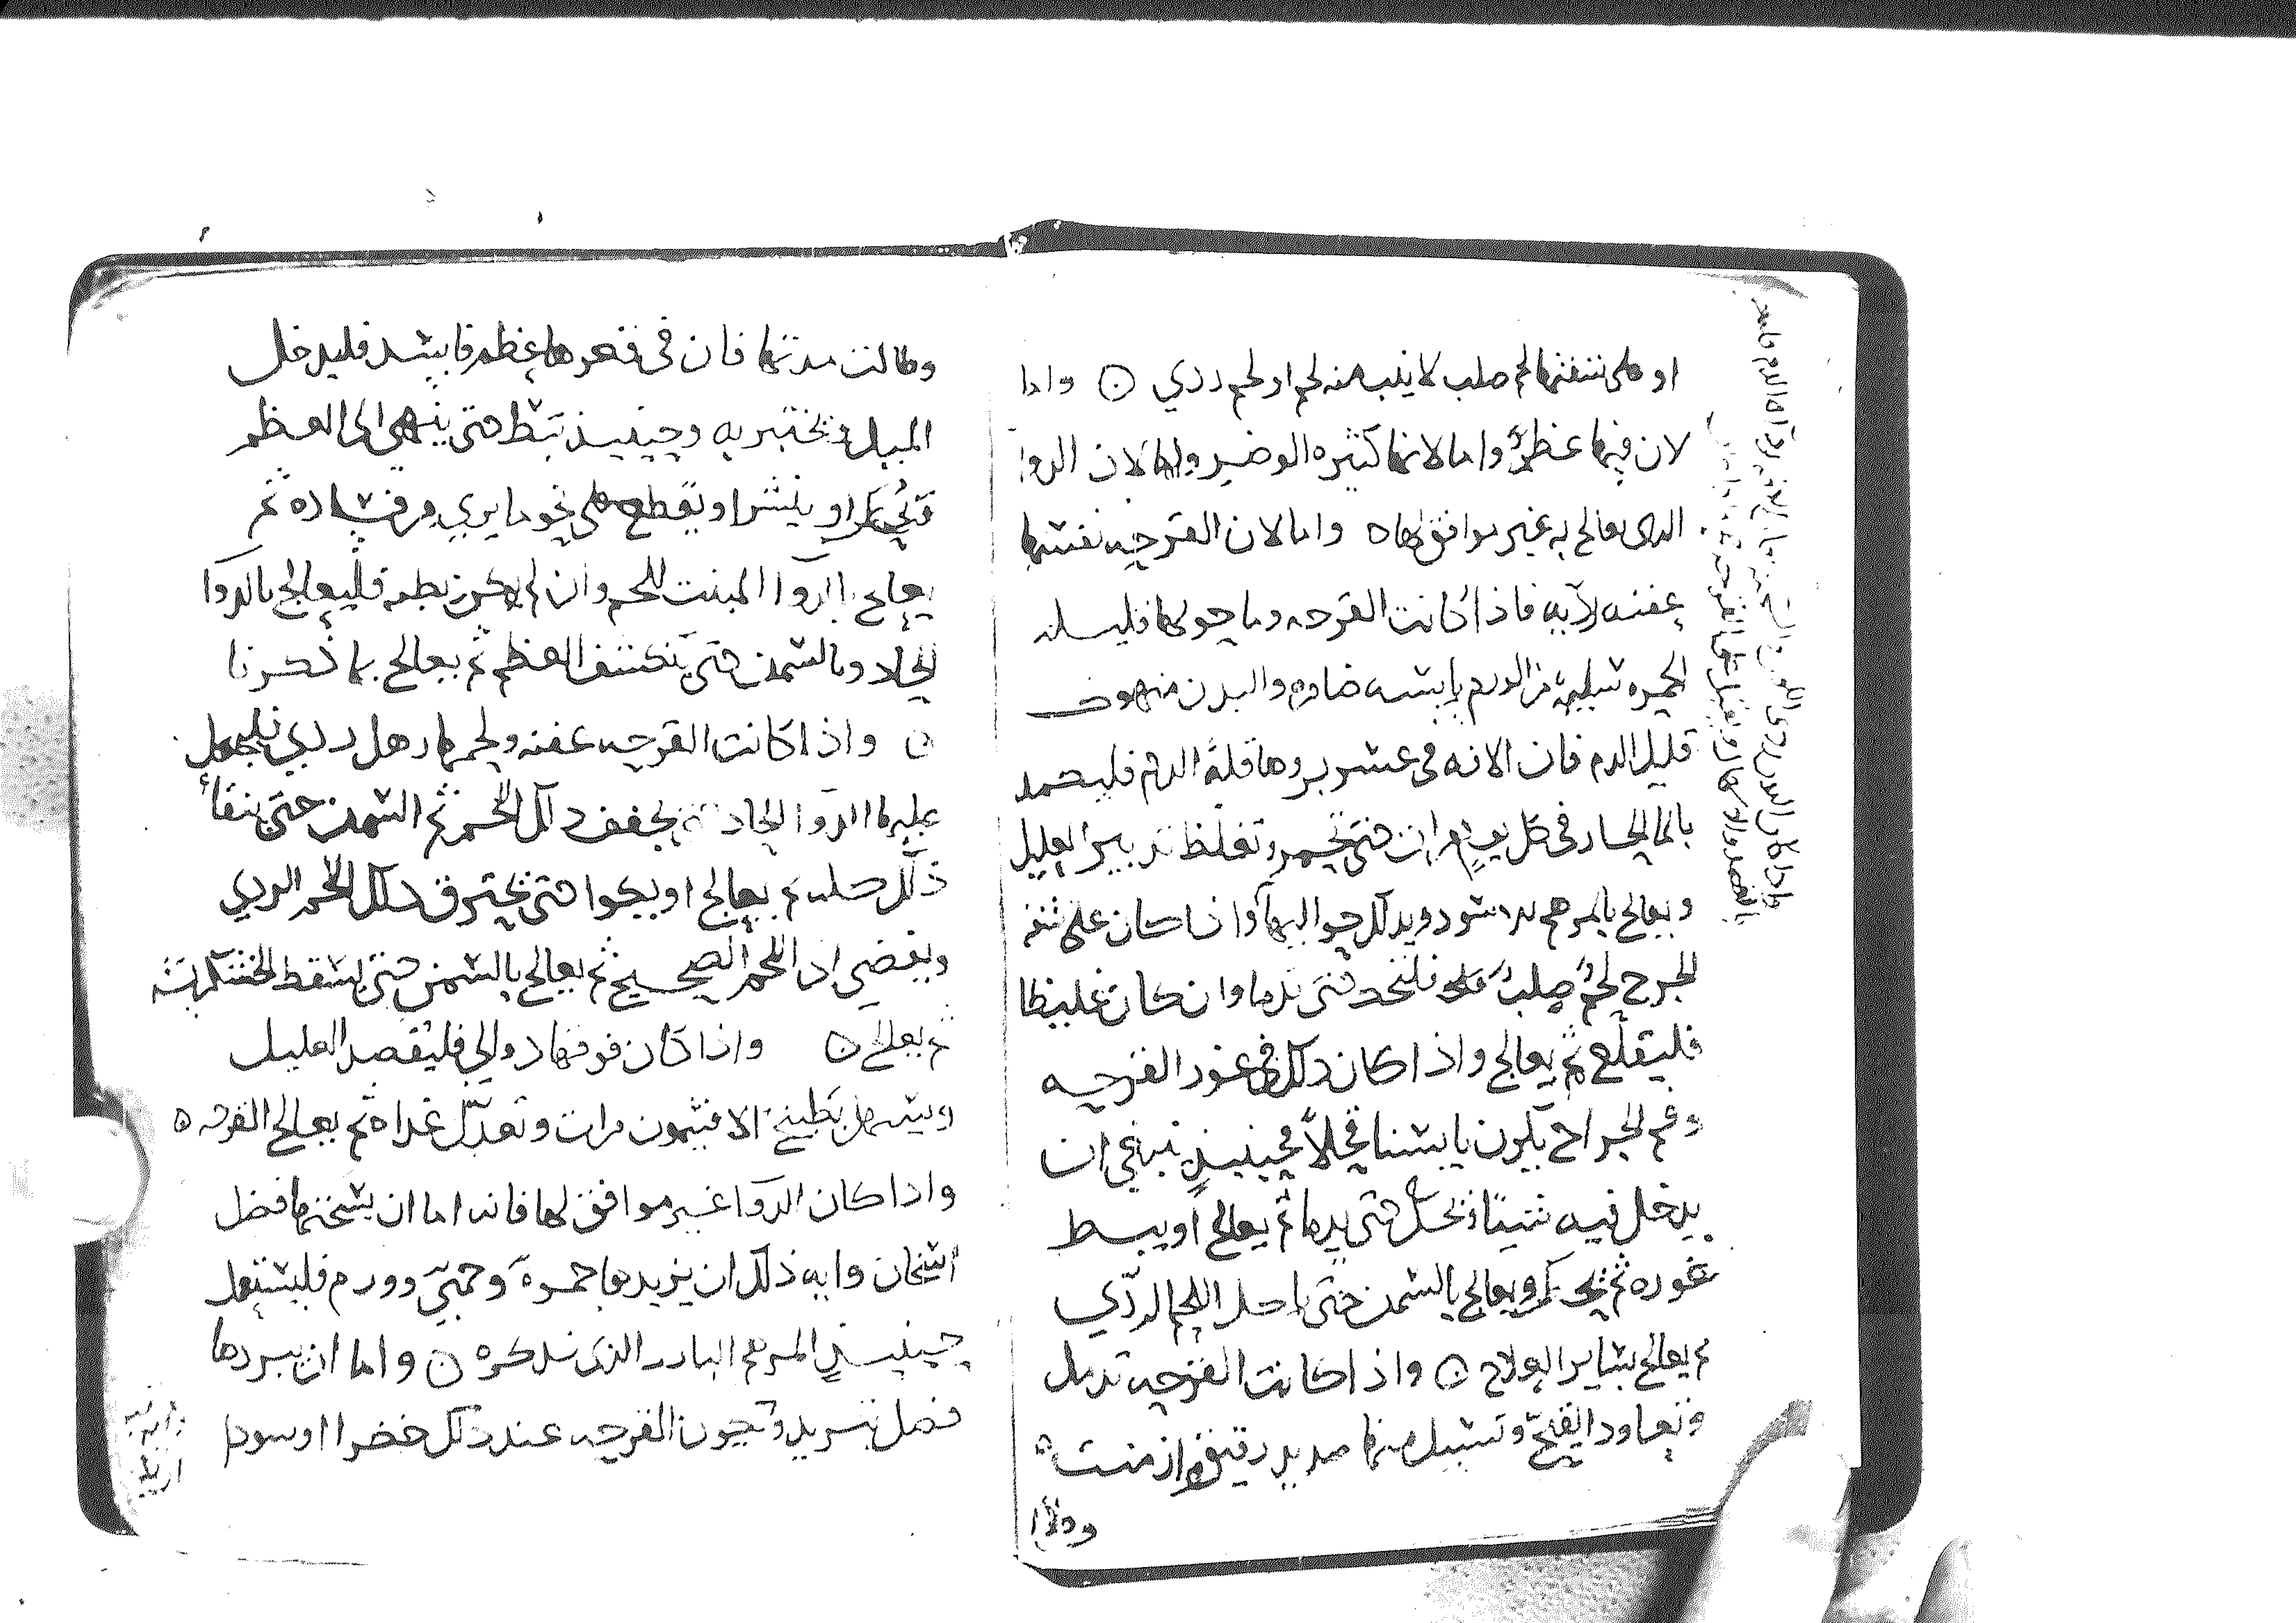 او على شفتها لحم صلب لا ينبت منه لحم او لحم ردي ۞ واما
لان فيها عظم واما لانها كثيره الوضر واما لان الدوا
الدى يعالج به غير موافق لها ه واما لان القرحه نفسها
عفنه فاذا كانت القرحه وما حولها قليله
الحمره سليمه من الورم يابسه ضامره والبدن منهوك
قليل الدم فان الافه فى عسر بروها قلة الدم فليضمد
بالما الحار فى كل يوم مرات حتى تحمر وتغلظ تدبير العليل
ويعالج بالمرهم الاسود ويدلك حواليها واذا كان على شفه
الجرح لحم صلب فليحك حتى يدما وان كان غليظا
فليقلع ثم يعالج واذا كان ذلك فى غور القرحه
وفم الجراح يكون يابسا قحلا فحينيذ ينبغى ان
يدخل فيه شيا ويحك حتى يدما ثم يعالج او يبط
غوره ثم يحك ويعالج بالسمن حتى ياكل اللحم الردي
ثم يعالج بساير العلاج ۞ واذا كانت القرحه تدمل
وتعاود القيح وتسيل منها صديد رقيق وازمنت
وطالت مدتها فان فى قعرها عظم فاسد فليدخل
الميل ويختبر به وحينيذ تبط حتى ينتهى الى العظم
فيحك او ينشر او يقطع على نحو ما يري من فساده ثم
يعالج بالدوا المنبت للحم وان لم يكن بطه فليعالج بالدوا
الحاد وبالسمن حتى ينكشف العظم ثم يعالج بما ذكرنا
۞ واذا كانت القرحه عفنه ولحمها رهل ردي فليجعل
عليها الدوا الحاد يجفف ذلك اللحم ثم السمن حتى ينقا
ذلك كله ثم يعالج او يكوا حتى يحترق ذلك اللحم الردي
ويفضى الى اللحم الصحيح ثم يعالج بالسمن حتى يسقط الخشكريشه
ثم يعالج ۞ واذا كان فوقها دوالي فليفصد العليل
ويسهل بطبيخ الافتيمون مرات وتعدل غداه ثم يعالج القرحه ه
واذا كان الدوا غير موافق لها فانه اما ان يسخنها فضل
اسخان وايه ذلك ان يزيدها حمرة وحمى وورم فليستعمل
حينيذ المرهم البارد الذى نذكره ۞ واما ان يبردها
فضل تبريد وتكون القرحه عند ذلك خضرا او سودا